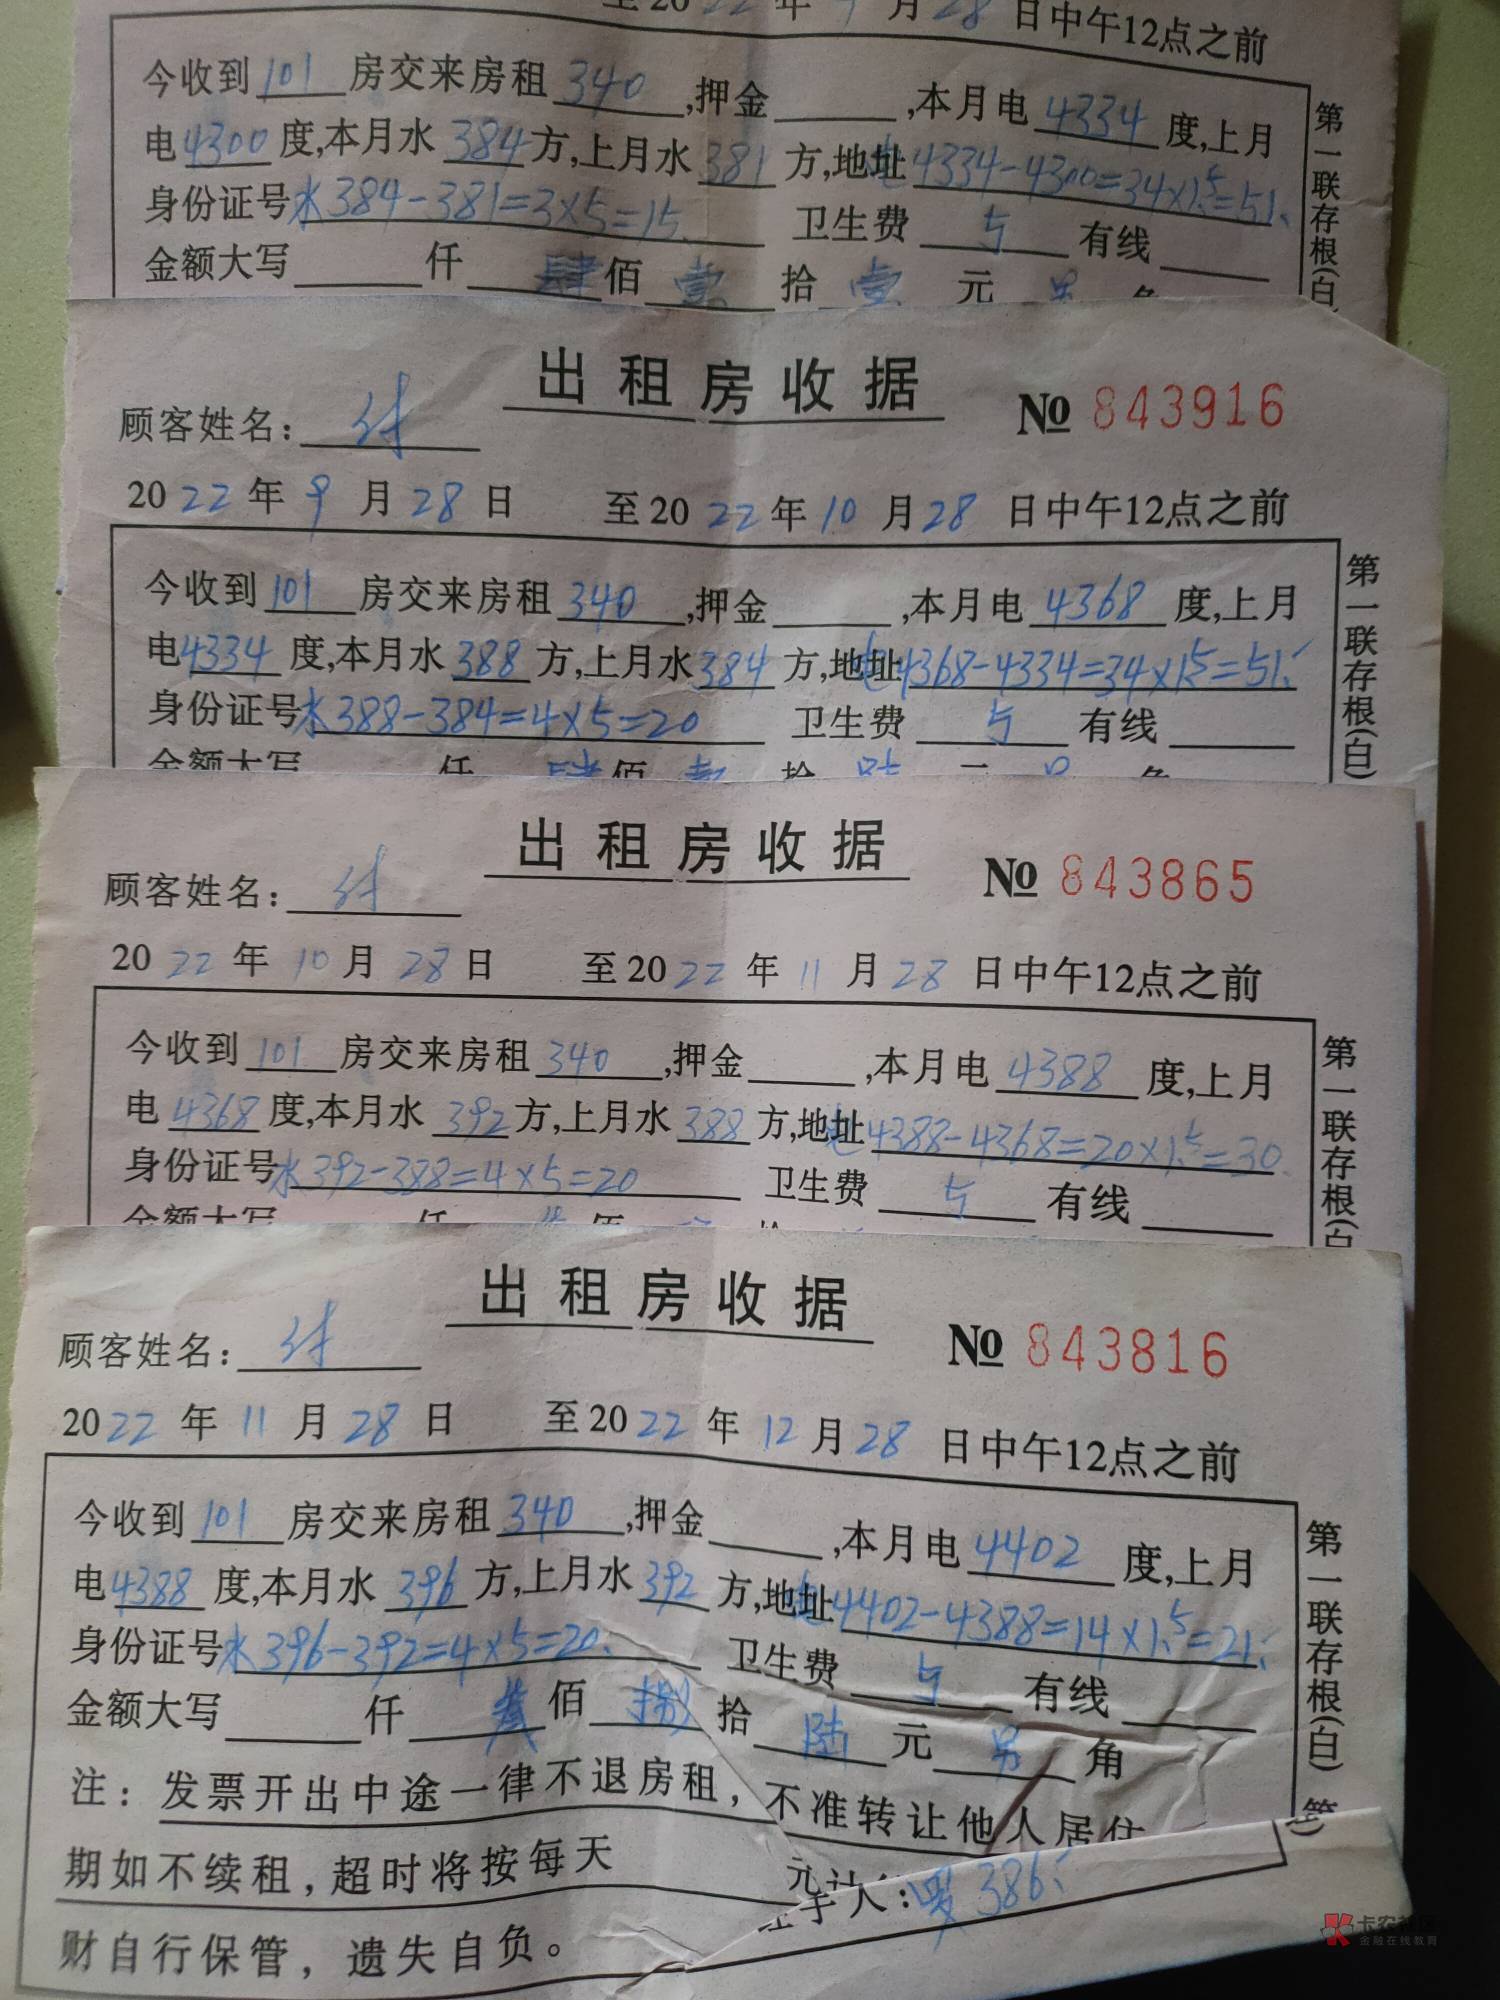 至2022年9月28日中午12点之前
今收到101房交来房租340,押金 ,本月电4334度,上月
电4300度,本月水384方,上月水381方,地址电4334-4300=34×1.5=51.
身份证号水384-381=3×5=15. 卫生费5有线
金额大写 仟肆佰壹拾壹元另角
第一联存根(白)
出租房收据
顾客姓名: No 843916
2022年9月28日 至2022年10月28日中午12点之前
今收到101房交来房租340,押金 ,本月电4368度,上月
电4334度,本月水388方,上月水384方,地址电4368-4334=34×1.5=51.
身份证号水388-384=4×5=20 卫生费5有线
金额大写 仟肆佰壹拾陆元另角
第一联存根(白)
出租房收据
顾客姓名: No 843865
2022年10月28日 至2022年11月28日中午12点之前
今收到101房交来房租340,押金 ,本月电4388度,上月
电4368度,本月水392方,上月水388方,地址电4388-4368=20×1.5=30.
身份证号水392-388=4×5=20 卫生费5有线
金额大写 仟 佰 拾
第一联存根(白
出租房收据
顾客姓名: No 843816
2022年11月28日 至2022年12月28日中午12点之前
今收到101房交来房租340,押金 ,本月电4402度,上月
电4388度,本月水396方,上月水392方,地址电4402-4388=14×1.5=21.
身份证号水396-392=4×5=20. 卫生费5有线
金额大写 仟叁佰捌拾陆元另角
注:发票开出中途一律不退房租,不准转让他人居住
期如不续租,超时将按每天 元计
手人: 386.
财自行保管,遗失自负。
第一联存根(白) 第
卡农社区
金融在线教育